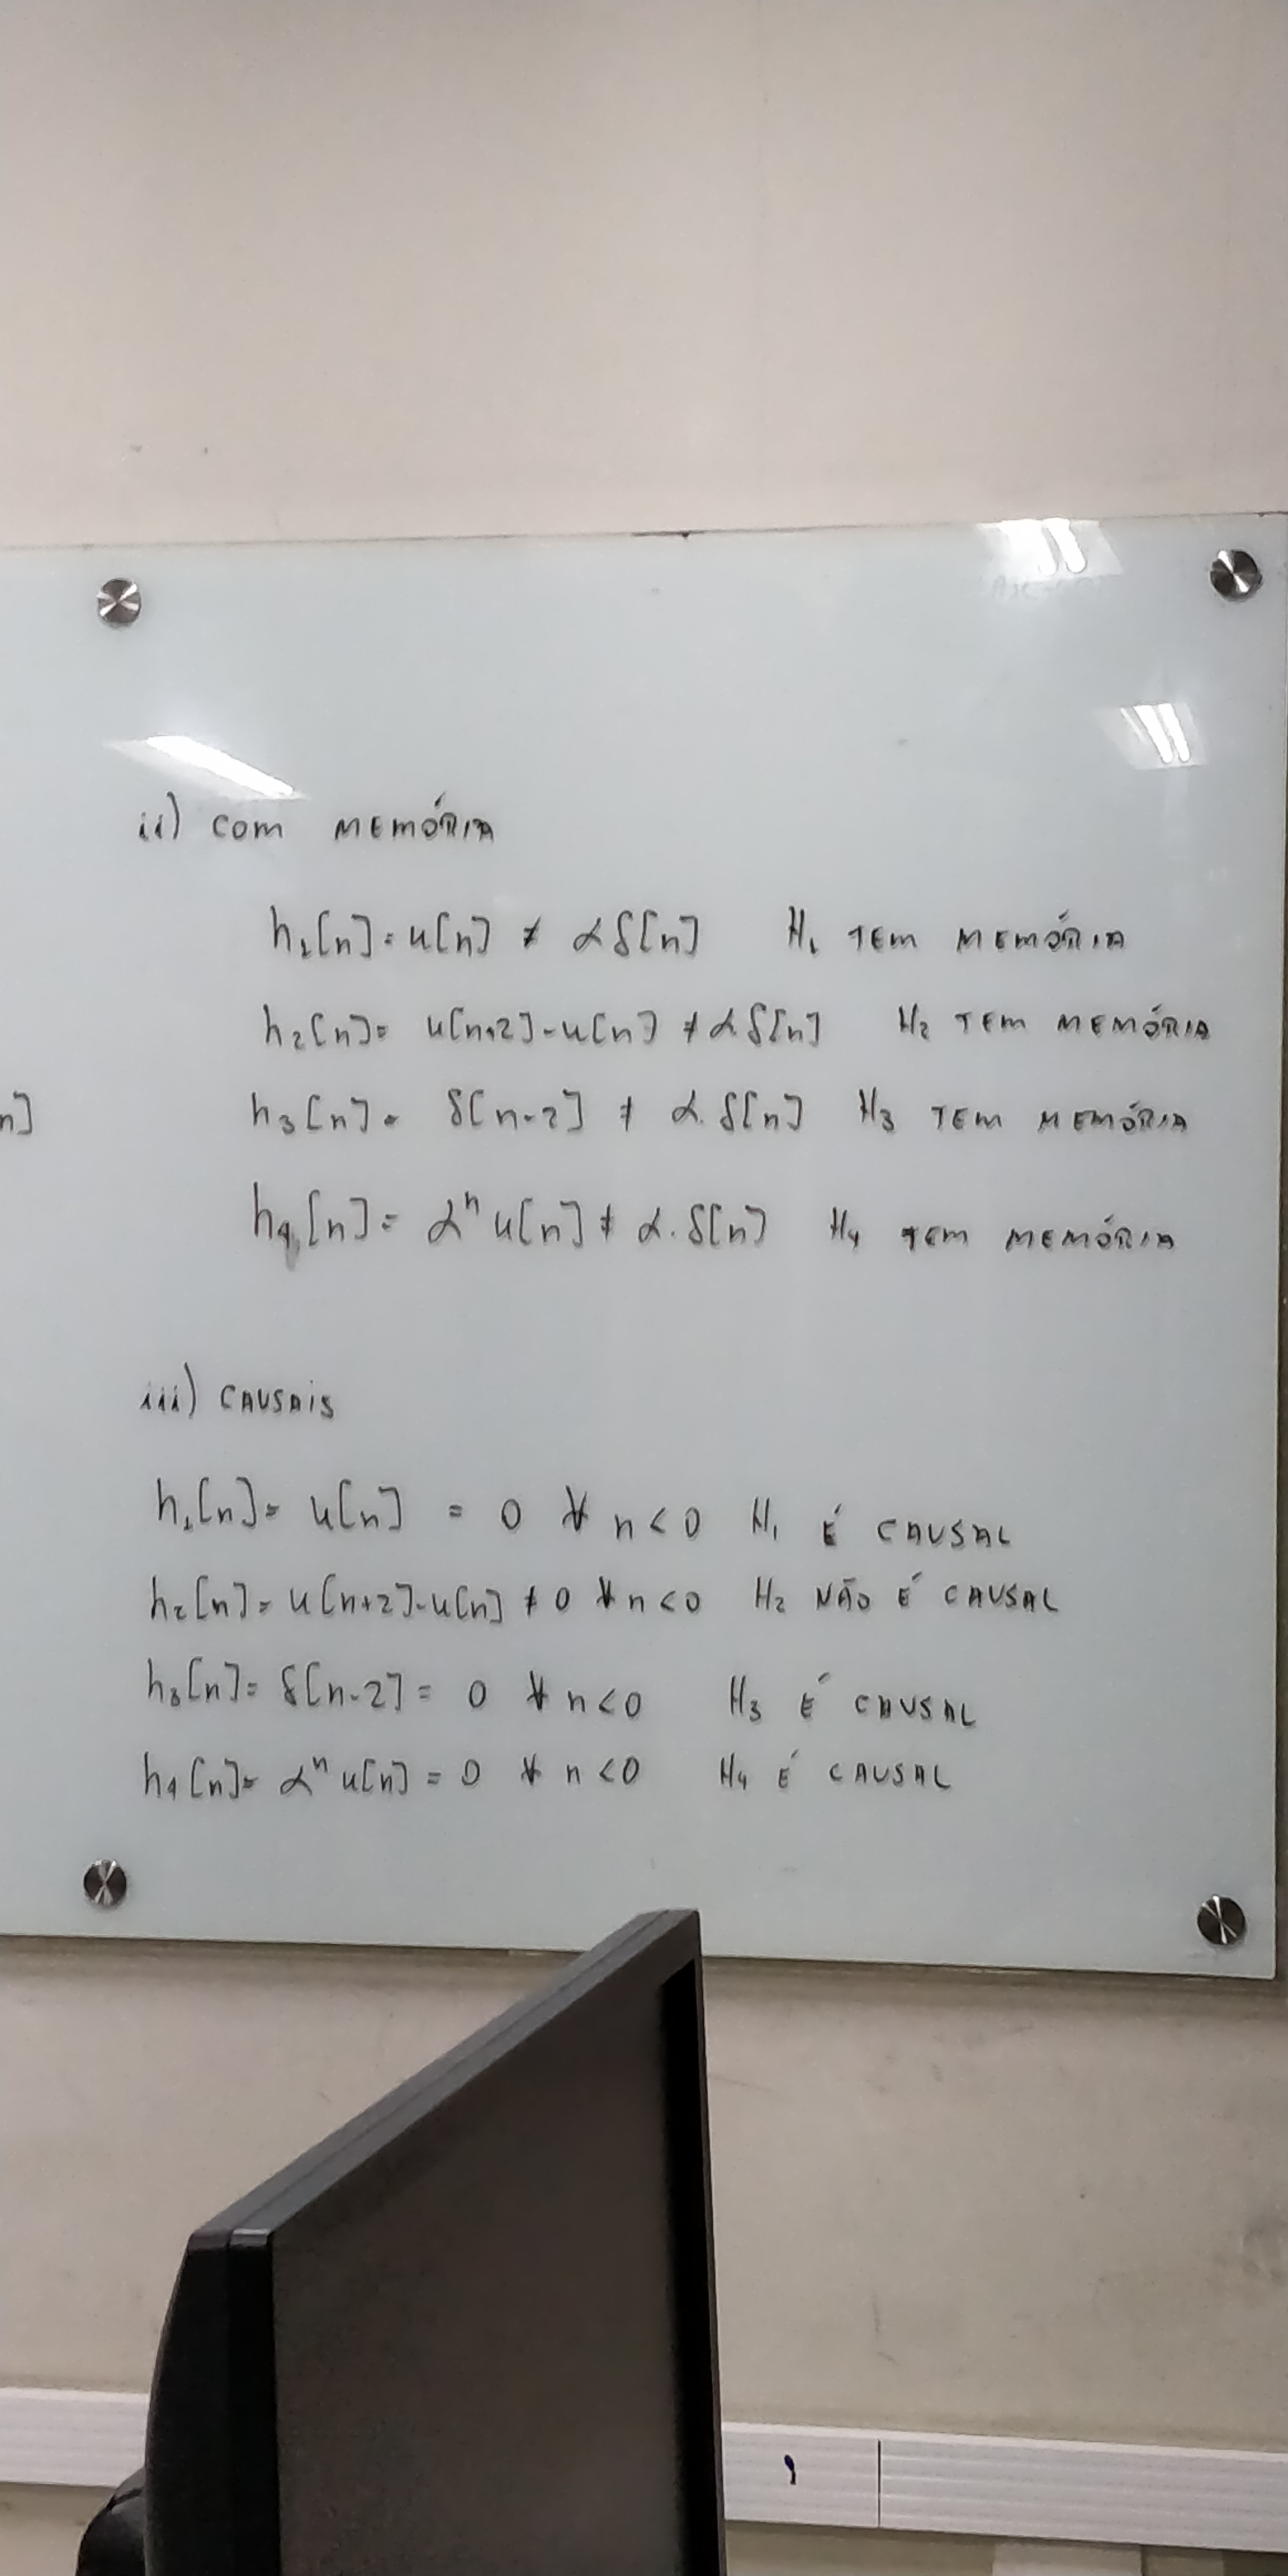 ii) COM MEMÓRIA
h₁[n] = u[n] ≠ αδ[n] H₁ TEM MEMÓRIA
h₂[n] = u[n+2]-u[n] ≠ α.δ[n] H₂ TEM MEMÓRIA
n]
h₃[n] = δ[n-2] ≠ α.δ[n] H₃ TEM MEMÓRIA
h₄[n] = αⁿu[n] ≠ α.δ[n] H₄ TEM MEMÓRIA
iii) CAUSAIS
h₁[n] = u[n] = 0 ∀ n<0 H₁ É CAUSAL
h₂[n] = u[n+2]-u[n] ≠ 0 ∀ n<0 H₂ NÃO É CAUSAL
h₃[n] = δ[n-2] = 0 ∀ n<0 H₃ É CAUSAL
h₄[n] = αⁿu[n] = 0 ∀ n<0 H₄ É CAUSAL